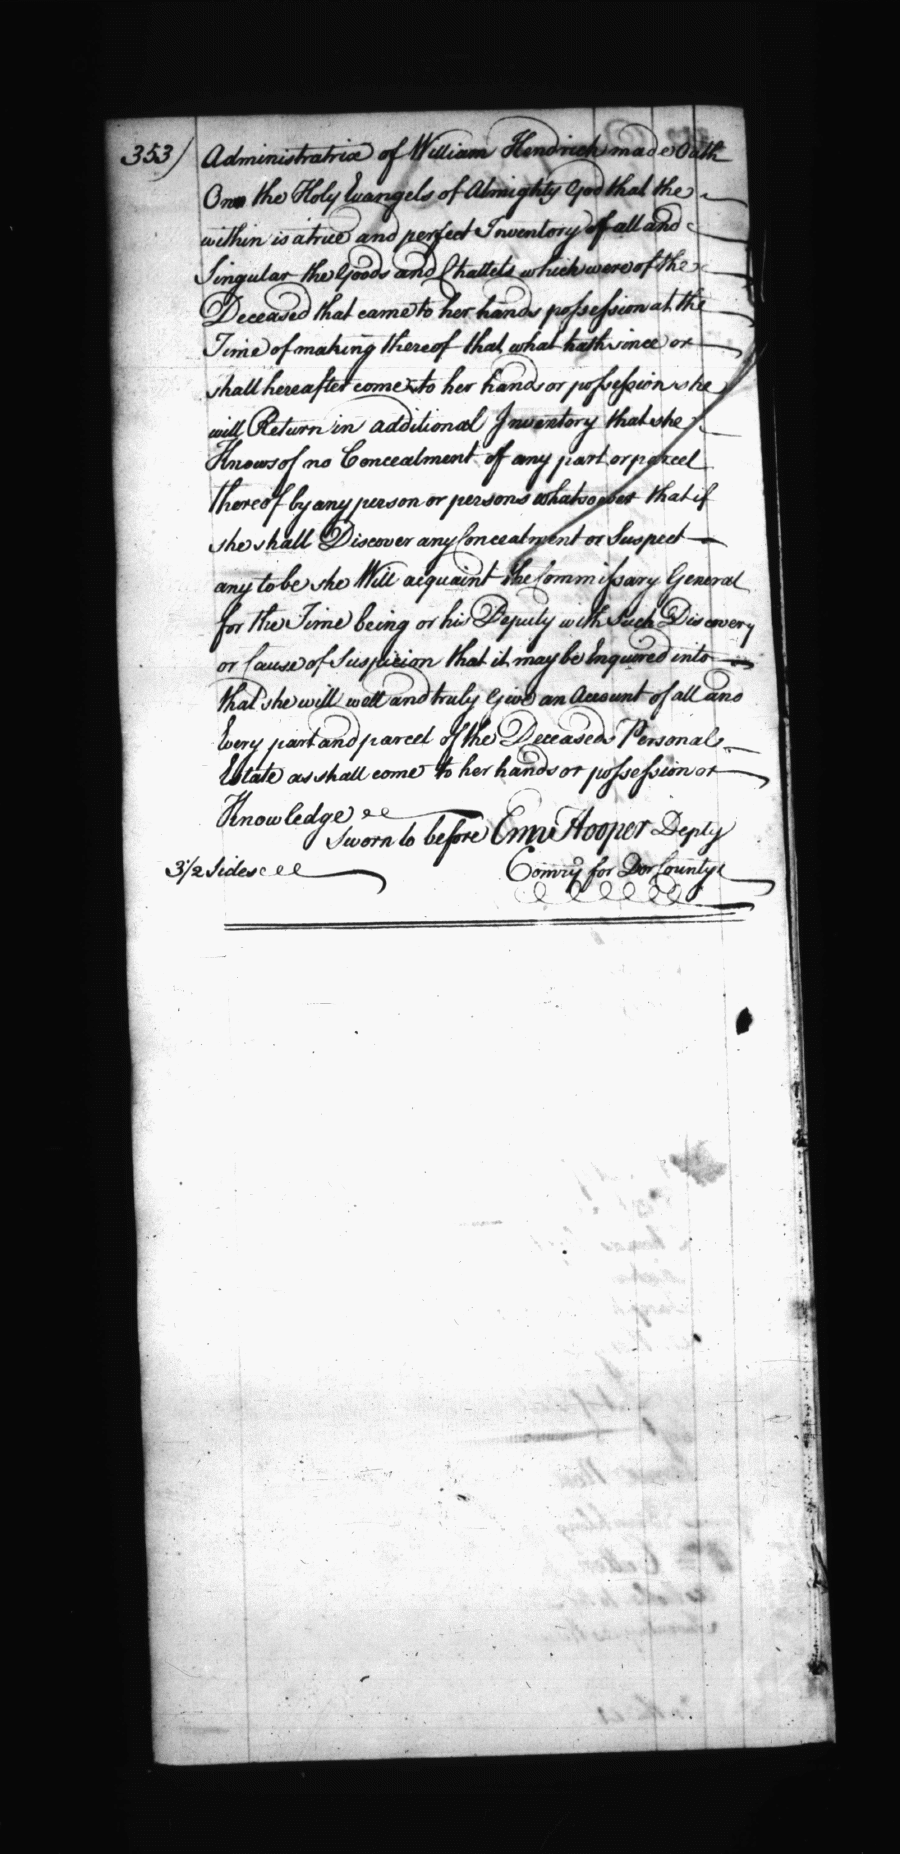 353) Administratrix of William Hendrick made Oath
On the Holy Evangels of Almighty God that the
within is a true and perfect Inventory of all and
Singular the Goods and Chattels which were of the
Deceased that came to her hands possession at the
Time of making thereof that what hath since or
shall hereafter come to her hands or possession she
will Return in additional Inventory that she
Knows of no Concealment of any part or parcel
thereof by any person or persons whatsoever that if
she shall Discover any Concealment or Suspect
any to be she Will acquaint the Commissary General
for the Time being or his Deputy with Such Discovery
or Cause of Suspicion that it may be Enquired into
that she will well and truly Give an Account of all and
Every part and parcel of the Deceaseds Personal
Estate as shall come to her hands or possession or
Knowledge
Sworn to before Emr Hooper Depty
3 1/2 Sides Comry for Dor County